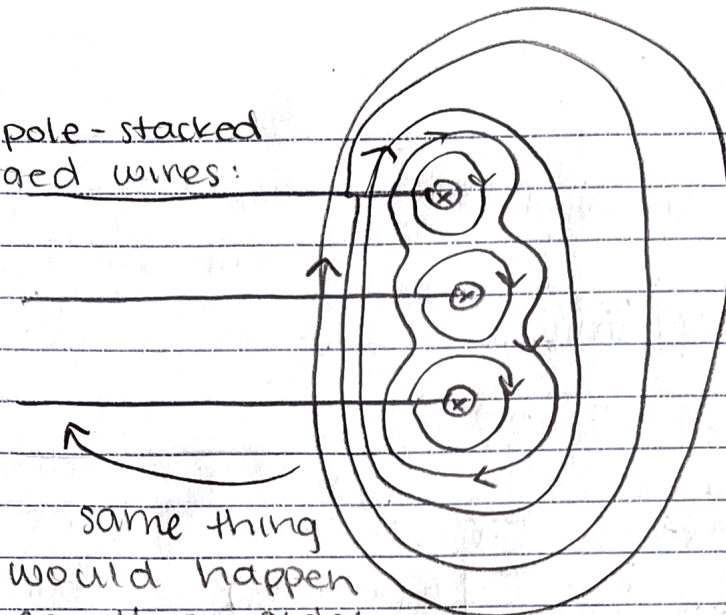 pole-stacked
ged wires:
same thing
would happen